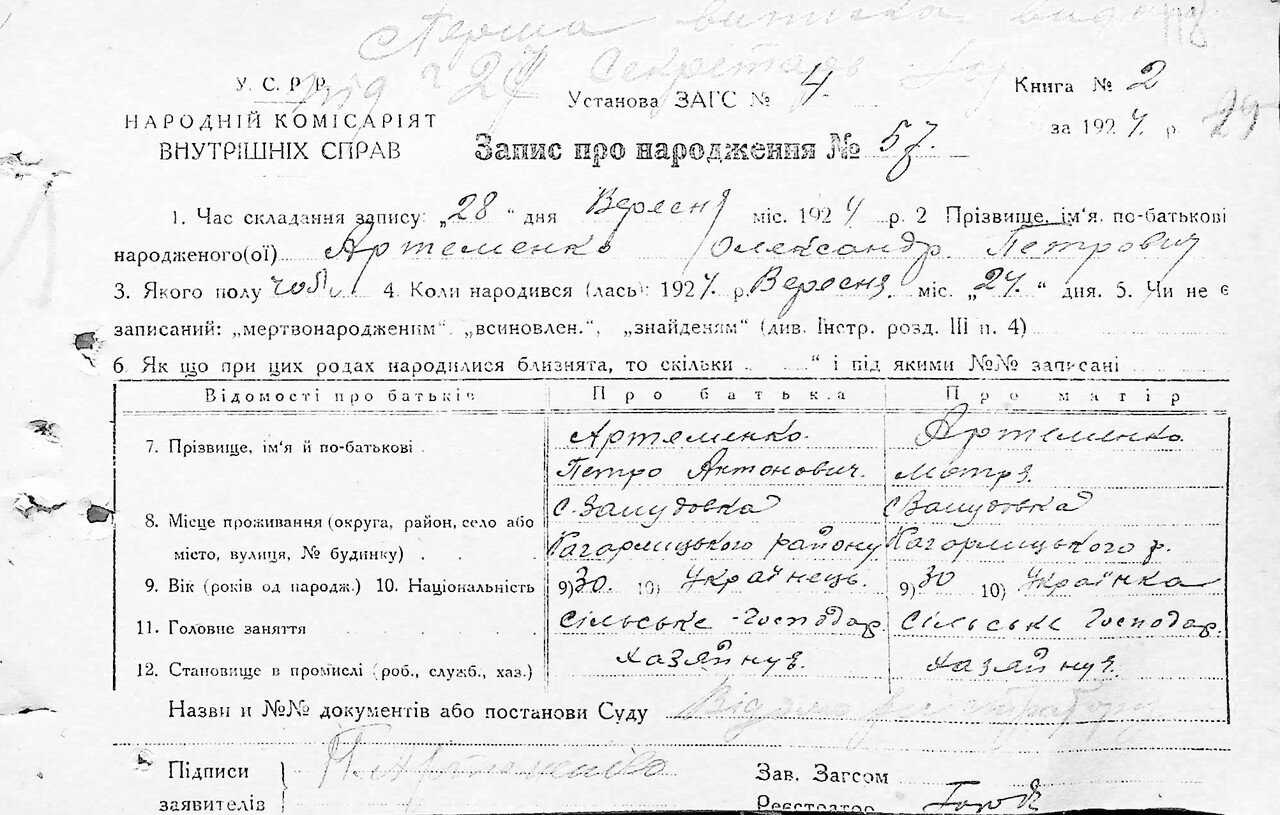 Перша виписка
Секретарь
У.С.Р.Р.
НАРОДНІЙ КОМІСАРІЯТ
ВНУТРІШНІХ СПРАВ
Установа ЗАГС № 4
Книга № 2
за 1924 р
Запис про народження № 57.
1. Час складання запису: „28“ дня Вересня міс. 1924 р. 2 Прізвище, ім'я, по-батькові
народженого(ої) Артеменко Олександр Петрович
3. Якого полу чол. 4. Коли народився (лась): 1924. р. Вересня. міс. „24.“ дня. 5. Чи не є
записаний: „мертвонародженим“, „всиновлен.“, „знайденям“ (див. Інстр. розд. III п. 4)
6. Як що при цих родах народилися близнята, то скільки “ і під якими №№ записані
Відомості про батьків Про батька Про матір
7. Прізвище, ім'я й по-батькові Артеменко Артеменко
Петро Антонович. Мотря.
8. Місце проживання (округа, район, село або с.
місто, вулиця, № будинку) Кагарлицького району Кагорлицького р.
9. Вік (років од народж.) 10. Національність 9) 30. 10) Українець. 9) 30 10) Українка
11. Головне заняття Сільське-Господар. Сільське Господар.
12. Становище в промислі (роб., служб., хаз.) Хазяйнув. хазяйнув.
Назви и №№ документів або постанови Суду Відомо реєстратору
Підписи
заявителів
П. Артеменко
Зав. Загсом
Реєстратор